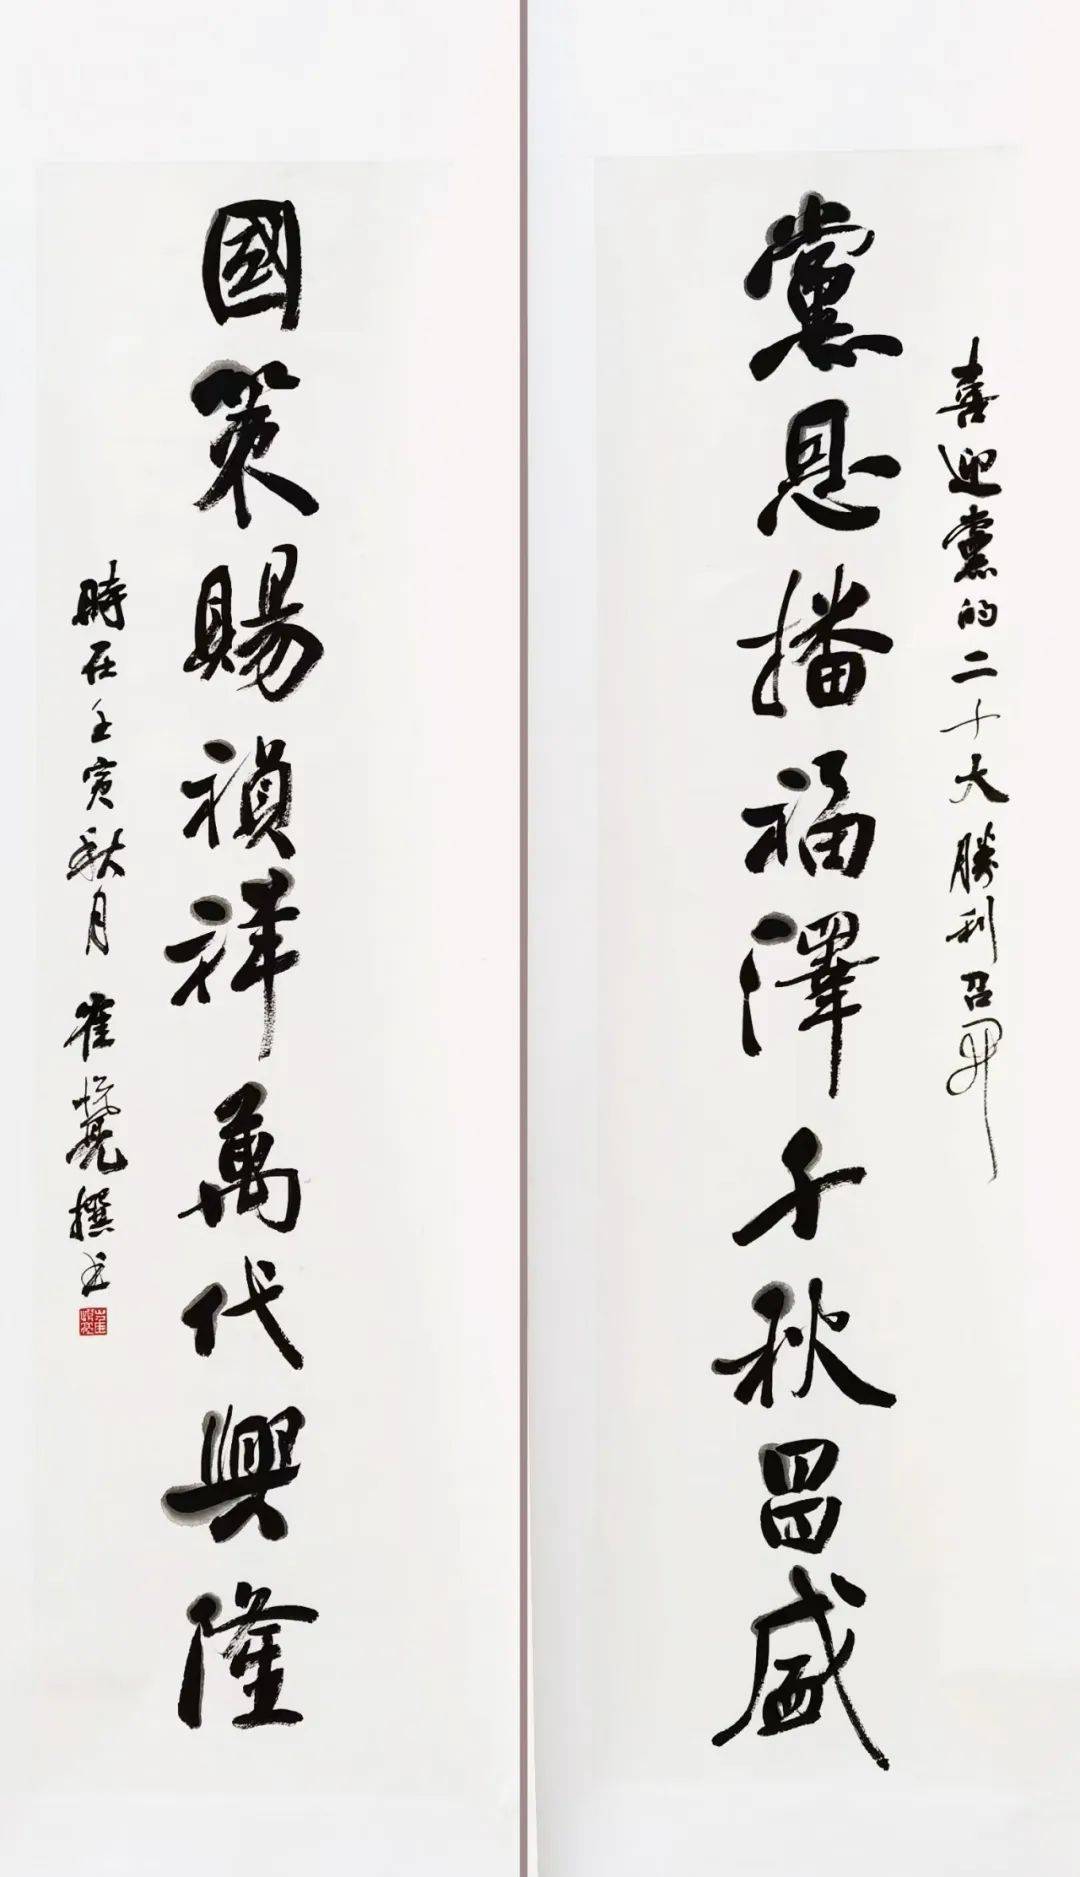 喜迎黨的二十大勝利召開
黨恩播福澤千秋昌盛
國策賜禎祥萬代興隆
時在壬寅秋月 崔亮撰书